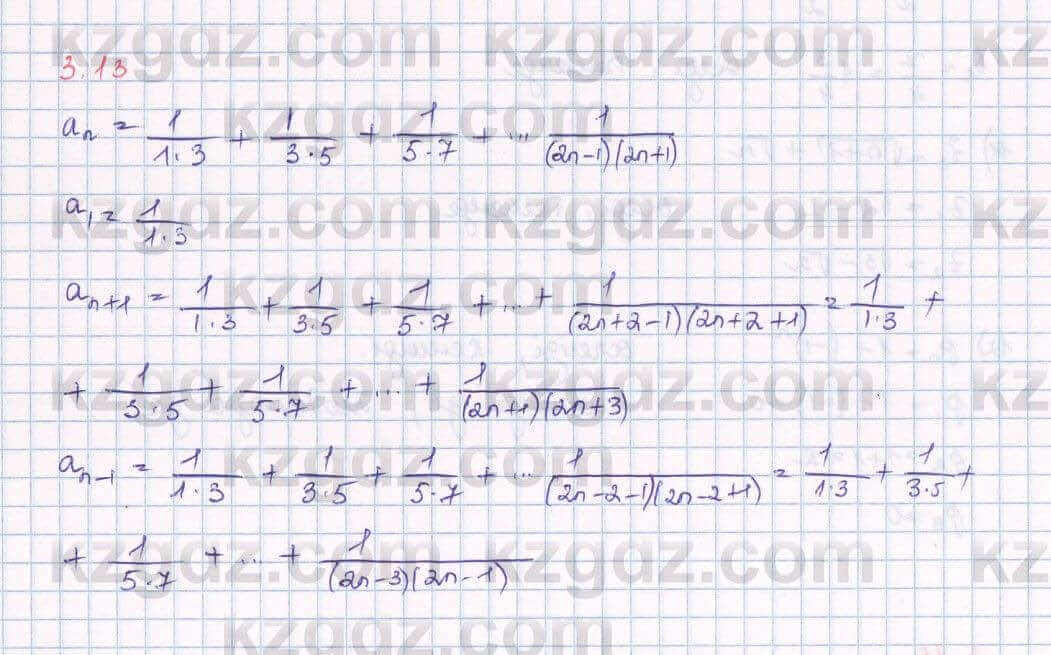 3.13
aₙ = 1/(1·3) + 1/(3·5) + 1/(5·7) + ... 1/((2n-1)(2n+1))
a₁ = 1/(1·3)
aₙ₊₁ = 1/(1·3) + 1/(3·5) + 1/(5·7) + ... + 1/((2n+2-1)(2n+2+1)) = 1/(1·3) +
+ 1/(3·5) + 1/(5·7) + ... + 1/((2n+1)(2n+3)
aₙ₋₁ = 1/(1·3) + 1/(3·5) + 1/(5·7) + ... 1/((2n-2-1)(2n-2+1)) = 1/(1·3) + 1/(3·5) +
+ 1/(5·7) + ... + 1/((2n-3)(2n-1))
kzgdz.com